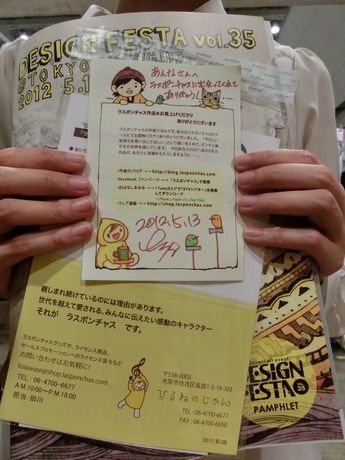 DESIGN FESTA vol.35
@TOKYO
2012 5.1
あんなさんへ
ラスポンチャスに出会ってくれて
ありがとう!
ラスポンチャス作品をお買上げくださり
ありがとうございます
・作者のブログ → → http://blog.lasponchas.com
・facebook ファンページ → → 「ラスポンチャス」で検索
してダウンロード
・ウェブ通販 → → http://shop.lasponchas.com
2012.5.13
親しまれ続けているのには理由があります。
世代を超えて愛される、みんなに伝えたい感動のキャラクター
それが ラスポンチャス です。
ラスポンチャスグッズや、ライセンス商品、
セールスプロモーションへのライセンス貸与など
お問い合わせはお気軽に!
toiawase@shop.lasponchas.com
TEL : 06-4700-6677
A.M.10:00〜P.M.18:00
担当 田川
〒558-0003
大阪市住吉区長居1-5-19-303
ひるねのじかん
TEL: 06-4700-6677
FAX: 06-4700-6650
2012 第3版
DESIGN
FESTA
35
PAMPHLET